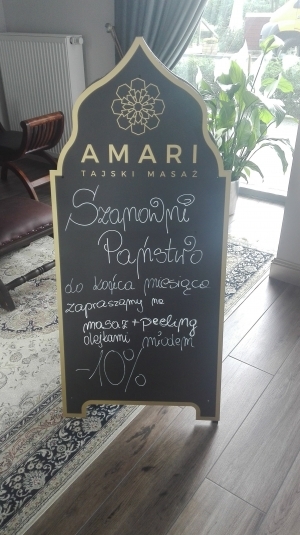 AMARI
TAJSKI MASAŻ
Szanowni
Państwo
do końca miesiąca
zapraszamy na
masaż + peeling
olejkami miodem
-10%